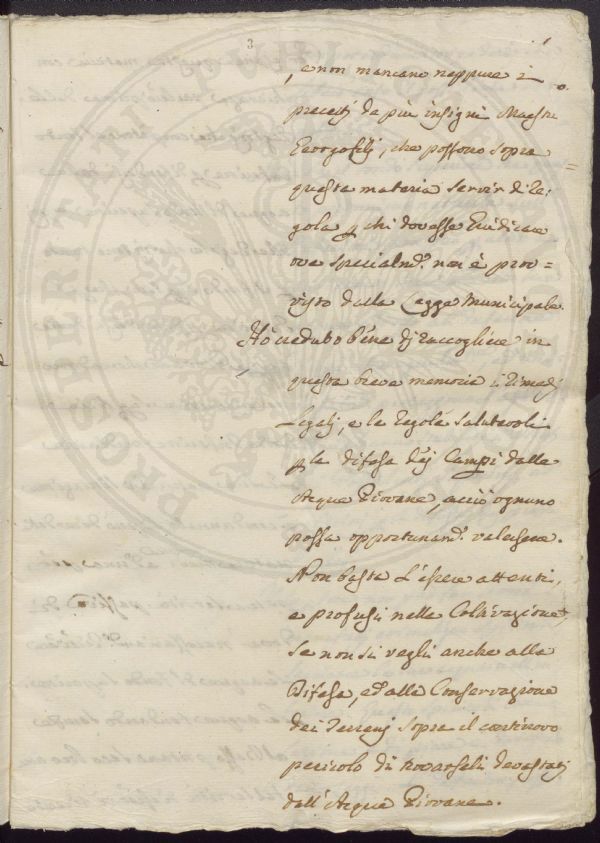 3
, e non mancano neppure i
precetti de più insigni Maestri
Georgofilj, che possono sopra
questa materia servir di Re-
gola p chi dovesse Giudicare
ove specialm.e non è prov=
visto dalla Legge Municipale.
Hò creduto bene di raccogliere in
questa breve memoria i Rimedj
Legali, e le regole salutevoli
p la difesa dei Campi dalle
Acque Piovane, acciò ognuno
possa opportunam.e valersene.
Non basta l'essere attenti,
e profusi nelle Coltivazione,
se non si vegli anche alla
Difesa, ed alla Conservazione
dei Terreni sopra il continovo
pericolo di trovarseli devastati
dall'Acque Piovane.
PROSPERITATI PUBLI